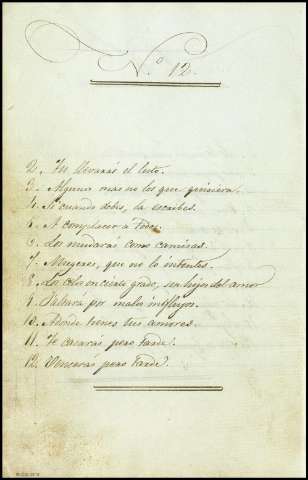 N.º 12.
2. Tu llevarás el luto.
3. Alguno mas no los que quisiera.
4. Si cuando debes, la escribes.
6. A complacer á Todos
5. Los mudarás como camisas.
7. Mugeres, que no lo intentes.
8. Los celos en cierto grado, son hijos del amor
9. Saldrá por malos influjos.
10. Donde tienes tus amores.
11. Te casarás pero tarde.
12. Vencerás pero tarde.